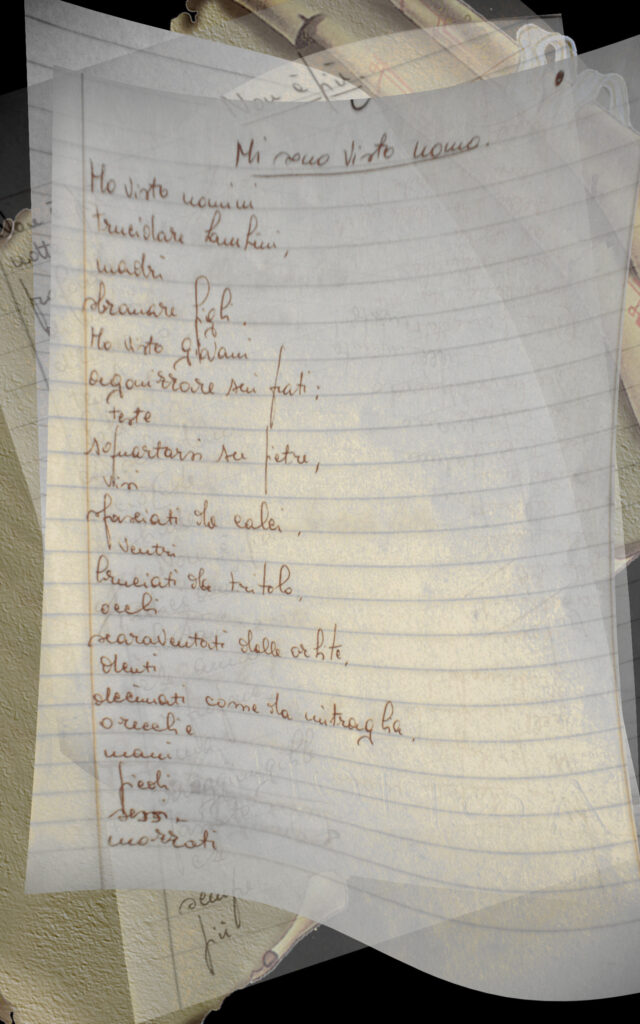 Non è più
Mi sono visto uomo.
Ho visto uomini
trucidare bambini,
madri
sbranare figli.
Ho visto giovani
agonizzare sui prati;
teste
squartarsi su pietre,
visi
sfasciati da calci,
ventri
bruciati da tritolo,
occhi
scaraventati dalle orbite,
denti
decimati come da mitraglia,
orecchie
mani
piedi
sessi
mozzati
sempre
più